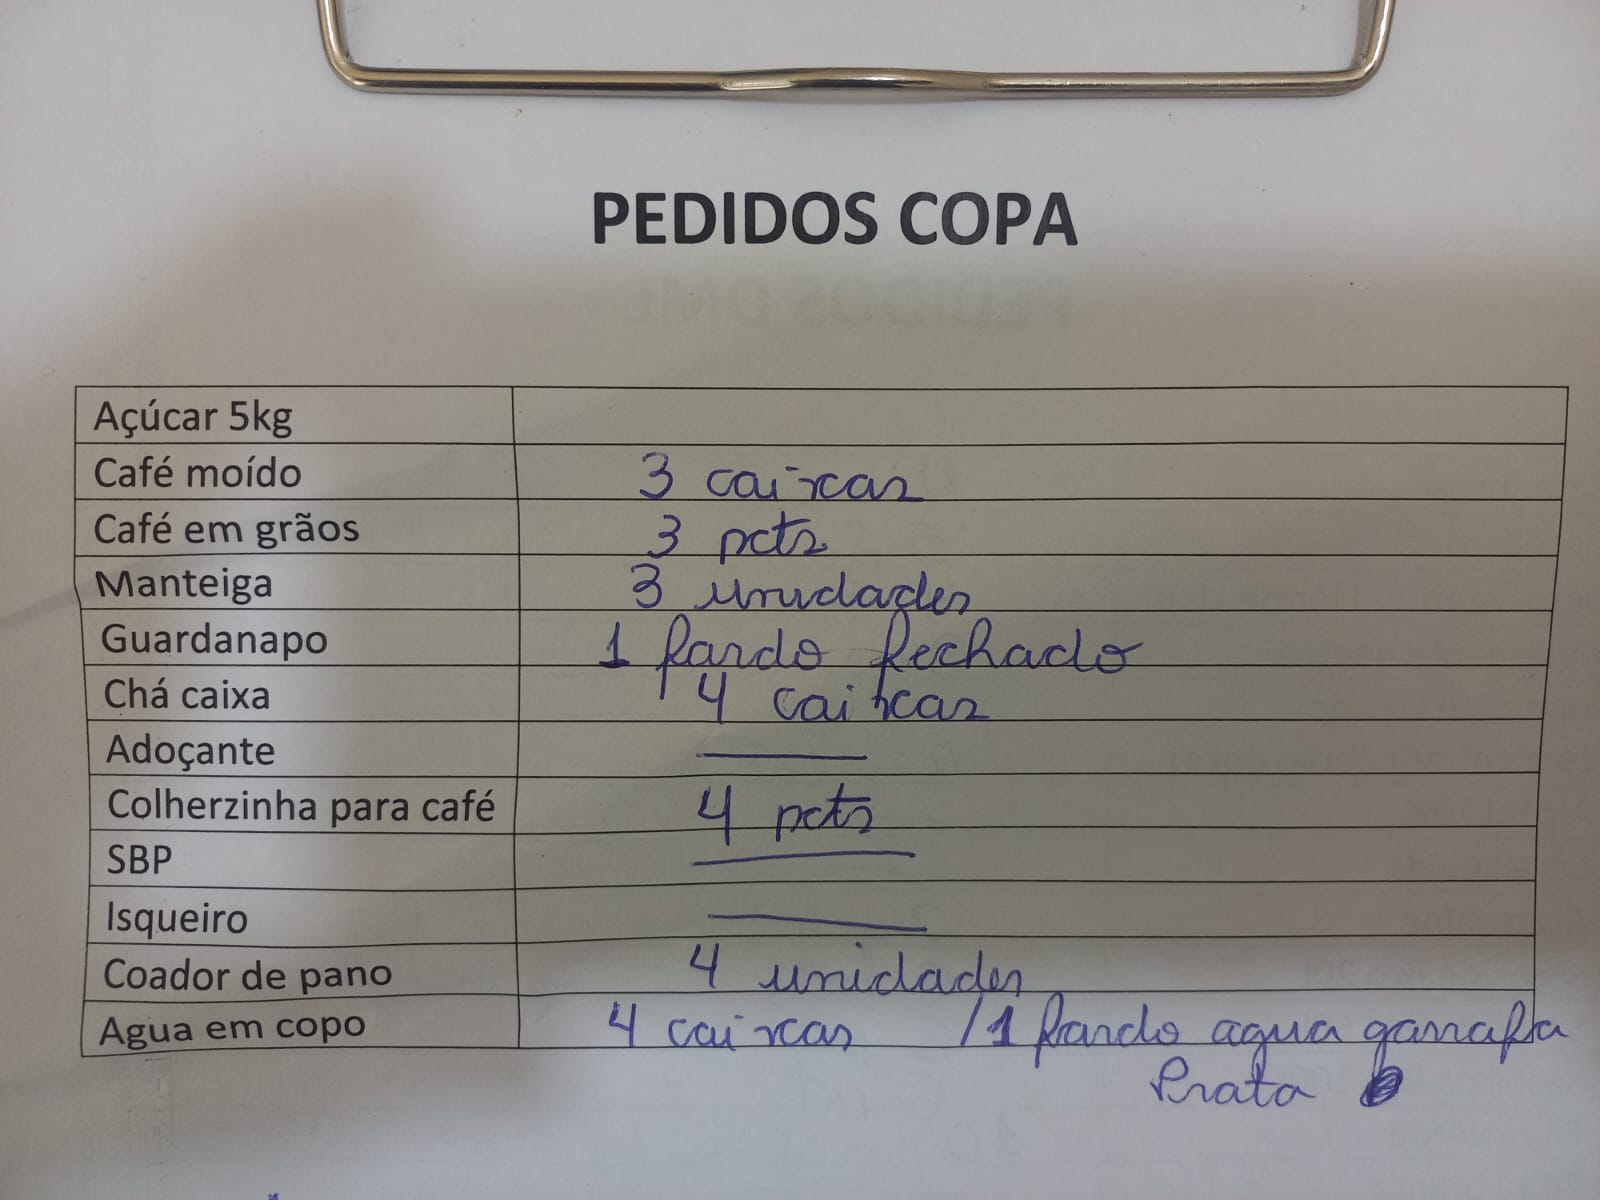 PEDIDOS COPA
Açúcar 5kg
Café moído 3 caixas
Café em grãos 3 pcts
Manteiga 3 unidades
Guardanapo 1 fardo fechado
Chá caixa 4 caixas
Adoçante
Colherzinha para café 4 pcts
SBP
Isqueiro
Coador de pano 4 unidades
Agua em copo 4 caixas / 1 fardo agua garrafa
Prata